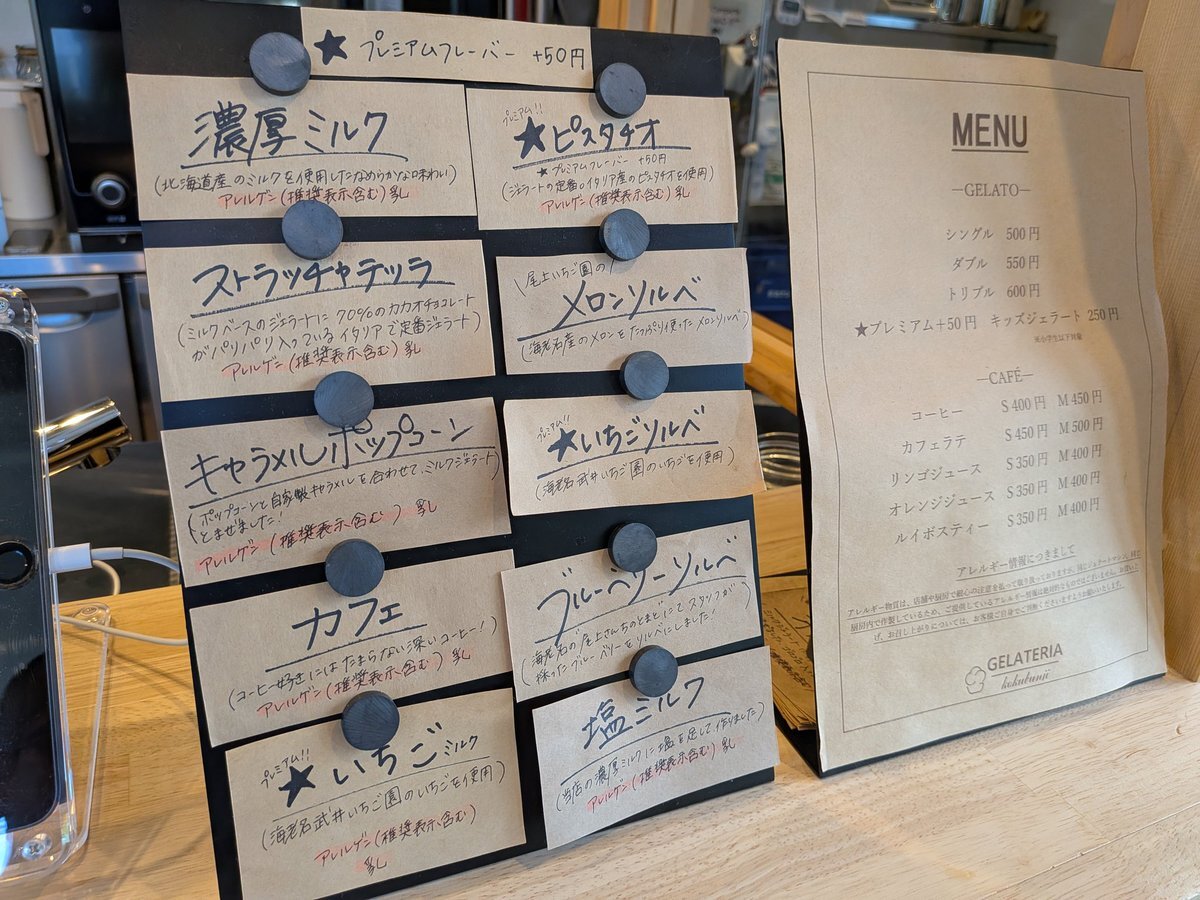 ★ プレミアムフレーバー +50円
濃厚ミルク
(北海道産のミルクを使用したなめらかな味わい)
アレルゲン(推奨表示含む)乳
ストラッチャテッラ
(ミルクベースのジェラートに70%のカカオチョコレート
がパリパリ入っているイタリアで定番ジェラート)
アレルゲン(推奨表示含む)乳
キャラメルポップコーン
(ポップコーンと自家製キャラメルを合わせて、ミルクジェラート)
とまぜました!
アレルゲン(推奨表示含む)乳
カフェ
(コーヒー好きにはたまらない深いコーヒー!)
アレルゲン(推奨表示含む)乳
プレミアム!!
★いちごミルク
(海老名武井いちご園のいちごを使用)
アレルゲン(推奨表示含む)
乳
プレミアム!!
★ピスタチオ
★プレミアムフレーバー +50円
(ジェラートの定番。イタリア産のピスタチオを使用)
アレルゲン(推奨表示含む)乳
\尾上いちご園の/
メロンソルベ
(海老名産のメロンをたっぷり使ったメロンソルベ)
プレミアム!!
★いちごソルベ
(海老名武井いちご園のいちごを使用)
ブルーベリーソルベ
(海老名の尾上さんちのとまとにてスタッフが
採ったブルーベリーをソルベにしました!)
塩ミルク
(当店の濃厚ミルクに塩を足して作りました)
アレルゲン(推奨表示含む)乳
MENU
—GELATO—
シングル 500円
ダブル 550円
トリプル 600円
★プレミアム+50円 キッズジェラート 250円
※小学生以下対象
—CAFÉ—
コーヒー S 400円 M 450円
カフェラテ S 450円 M 500円
リンゴジュース S 350円 M 400円
オレンジジュース S 350円 M 400円
ルイボスティー S 350円 M 400円
アレルギー情報につきまして
アレルギー物質は、店舗や厨房で細心の注意を払って取り扱っておりますが、同じショーケース、同じ
厨房内で作製しているため、ご提供しているアレルギー情報は絶対的なものではございません。お買い上
げ、お召し上がりについては、お客様ご自身でご判断くださいますようお願いいたします。
GELATERIA
kokubunji